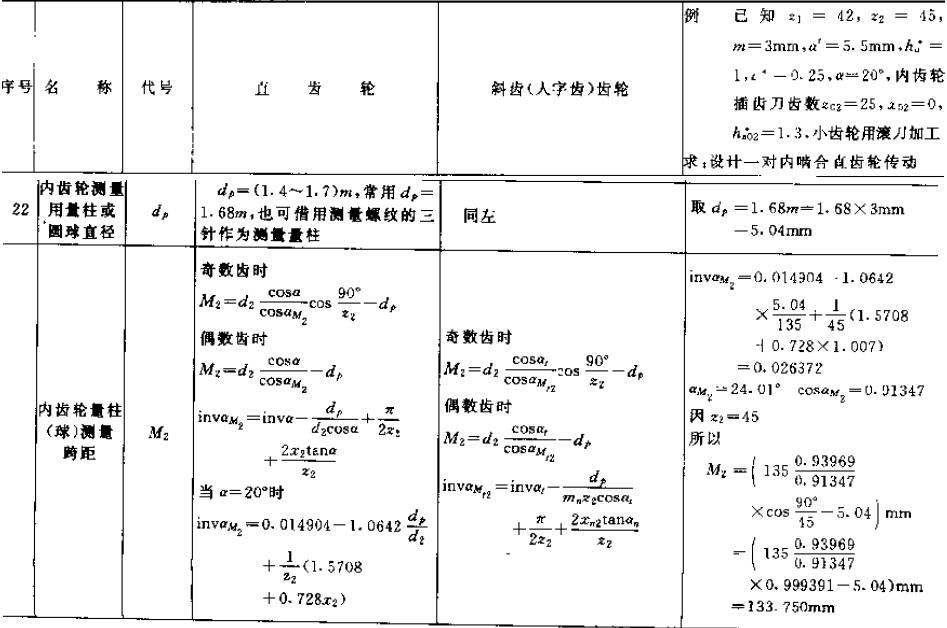 序号
名 称
代号
直 齿 轮
斜齿(人字齿)齿轮
例 已知 z₁ = 42, z₂ = 45,
m=3mm,a′=5.5mm,hₐ* =
1,c*=0.25,α=20°,内齿轮
插齿刀齿数z₀₂=25,x₀₂=0,
hₐ₀₂*=1.3,小齿轮用滚刀加工
求:设计一对内啮合直齿轮传动
22
内齿轮测量
用量柱或
圆球直径
dₚ
dₚ=(1.4～1.7)m,常用 dₚ=
1.68m,也可借用测量螺纹的三
针作为测量量柱
同左
取 dₚ=1.68m=1.68×3mm
=5.04mm
内齿轮量柱
(球)测量
跨距
M₂
奇数齿时
M₂=d₂ cosα/cosα_M₂ cos 90°/z₂ −dₚ
偶数齿时
M₂=d₂ cosα/cosα_M₂ −dₚ
invα_M₂=invα− dₚ/d₂cosα + π/2z₂
+ 2x₂tanα/z₂
当 α=20°时
invα_M₂=0.014904−1.0642 dₚ/d₂
+ 1/z₂ (1.5708
+0.728x₂)
奇数齿时
M₂=d₂ cosαₜ/cosα_Mt2 cos 90°/z₂ −dₚ
偶数齿时
M₂=d₂ cosαₜ/cosα_Mt2 −dₚ
invα_Mt2=invαₜ− dₚ/mₙz₂cosαₜ
+ π/2z₂ + 2xₙ₂tanαₙ/z₂
invα_M₂=0.014904−1.0642
× 5.04/135 + 1/45 (1.5708
+0.728×1.007)
=0.026372
α_M₂=24.01° cosα_M₂=0.91347
因 z₂=45
所以
M₂ =(135 0.93969/0.91347
×cos 90°/45 −5.04) mm
=(135 0.93969/0.91347
×0.999391−5.04)mm
=133.750mm